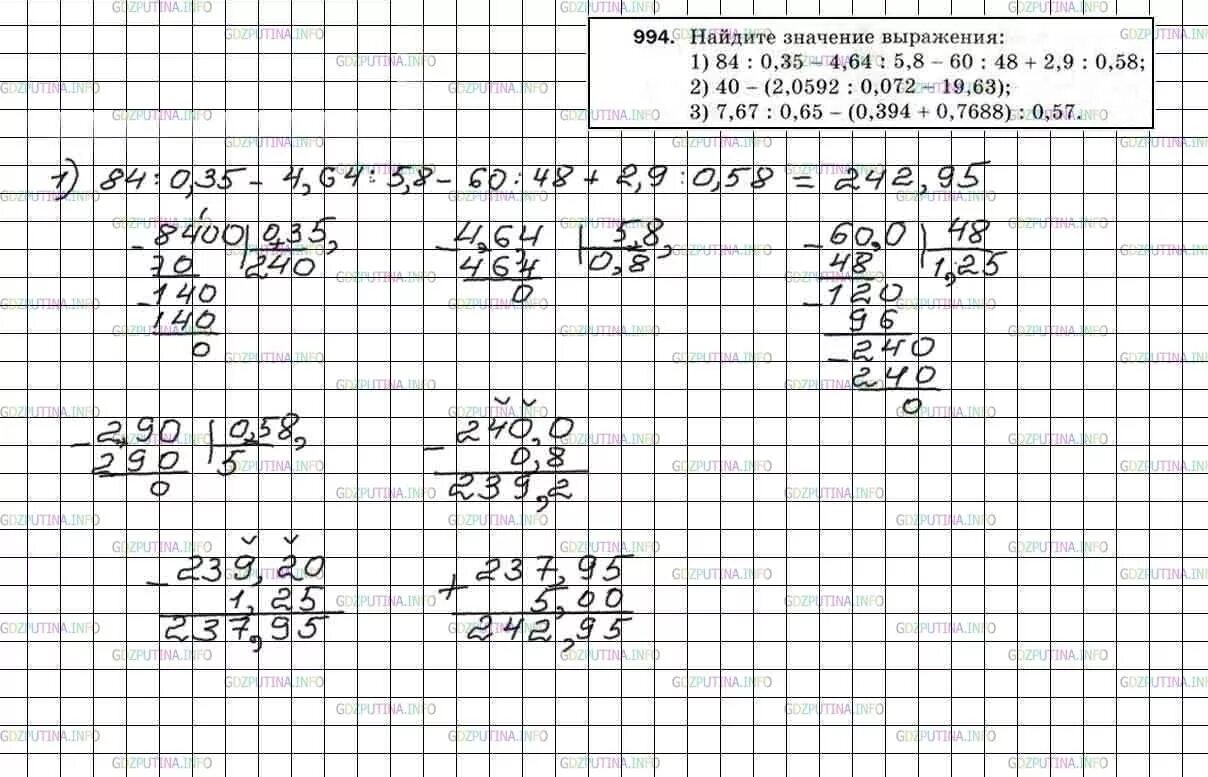 994. Найдите значение выражения:
1) 84 : 0,35 – 4,64 : 5,8 – 60 : 48 + 2,9 : 0,58;
2) 40 – (2,0592 : 0,072 – 19,63);
3) 7,67 : 0,65 – (0,394 + 0,7688) : 0,57.
1) 84 : 0,35 - 4,64 : 5,8 - 60 : 48 + 2,9 : 0,58 = 242,95
- 8400 | 0,35,
70 | 240
- 140
140
0
- 4,6,4 | 5,8,
464 | 0,8
0
- 60,0 | 48
48 | 1,25
- 120
96
- 240
240
0
- 2,90 | 0,58,
290 | 5
0
- 240,0
0,8
239,2
- 239,20
1,25
237,95
+ 237,95
5,00
242,95
GDZPUTINA.INFO